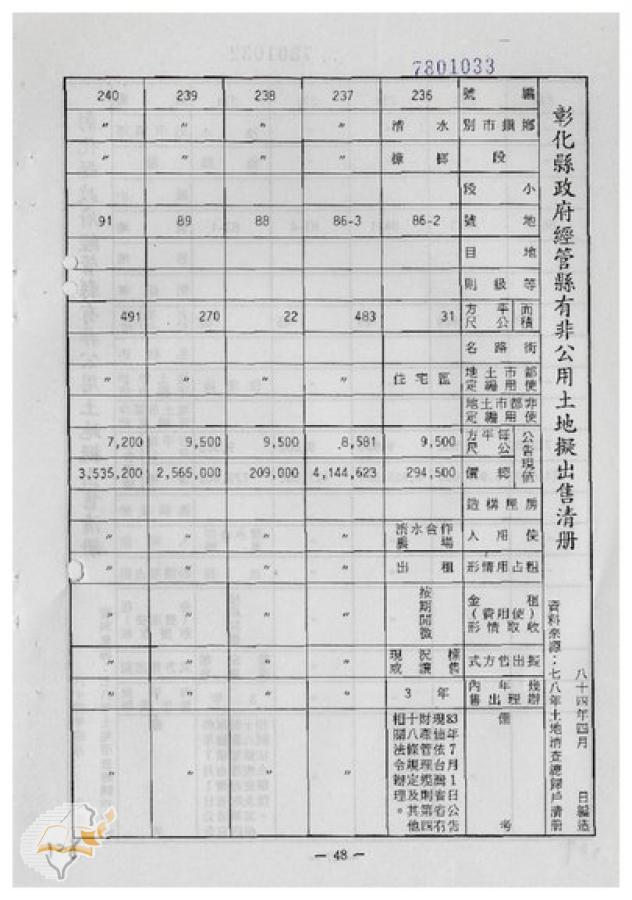 7801033
彰化縣政府經管縣有非公用土地擬出售清册
八十四年四月 日編造
資料來源：七八年土地清查總歸戶清冊
編號 236 237 238 239 240
鄉鎮市別 清水 〃 〃 〃 〃
段 槺榔 〃 〃 〃 〃
小段
地號 86-2 86-3 88 89 91
地目
等級則
面積 平方公尺 31 483 22 270 491
街路名
都市土地使用編定 住宅區 〃 〃 〃 〃
非都市土地使用編定
公告現值 每平方公尺 9,500 8,581 9,500 9,500 7,200
總價 294,500 4,144,623 209,000 2,565,000 3,535,200
房屋構造
使用人 清水合作農場 〃 〃 〃 〃
租占用情形 出租 〃 〃 〃 〃
租金(使用費)收取情形 按期開徵 〃 〃 〃 〃
擬出售方式 現況標售或讓售 〃 〃 〃 〃
幾年內辦理出售 3年 〃 〃 〃 〃
備考 83年7月1日公告現值依台灣省省有財產管理規則第四十八條規定及其他相關法令辦理。 〃 〃 〃 〃
— 48 —